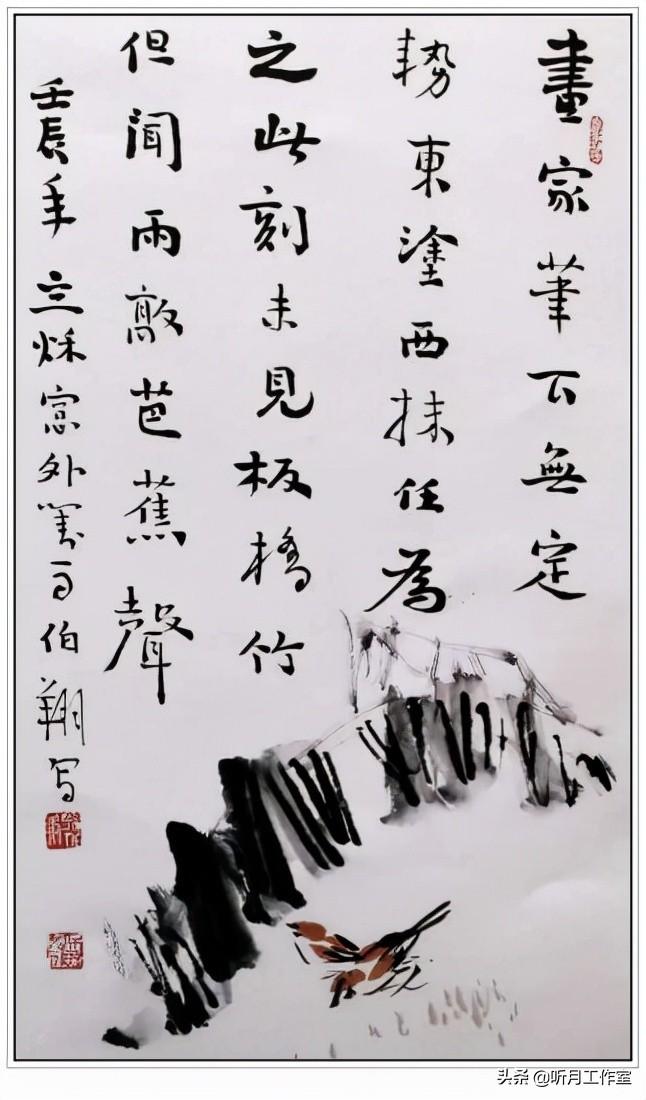 畫家筆下無定
勢東塗西抹任為
之此刻未見板橋竹
但聞雨敲芭蕉聲
壬辰年立秌窓外伯翔写
头条 @听月工作室